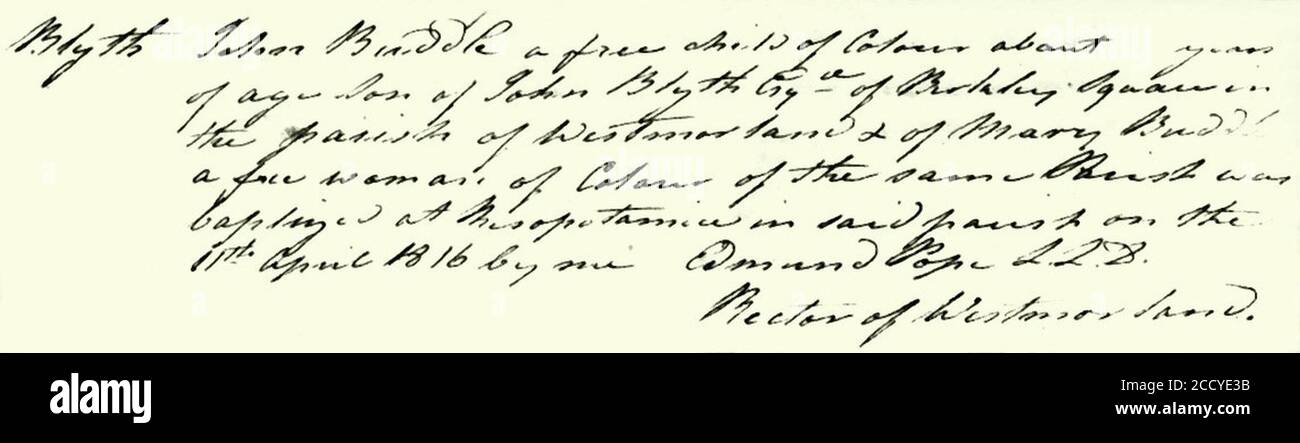 Blyth John Buddle a free child of Colour about years
of age son of John Blyth Esqre of Berkley Square in
the parish of Westmorland & of Mary Buddl
a free woman of Colour of the same Parish was
baptized at Mesopotamia in said parish on the
11th April 1816 by me Edmund Pope L.L.D.
Rector of Westmorland.
alamy
Image ID: 2CCYE3B
www.alamy.com